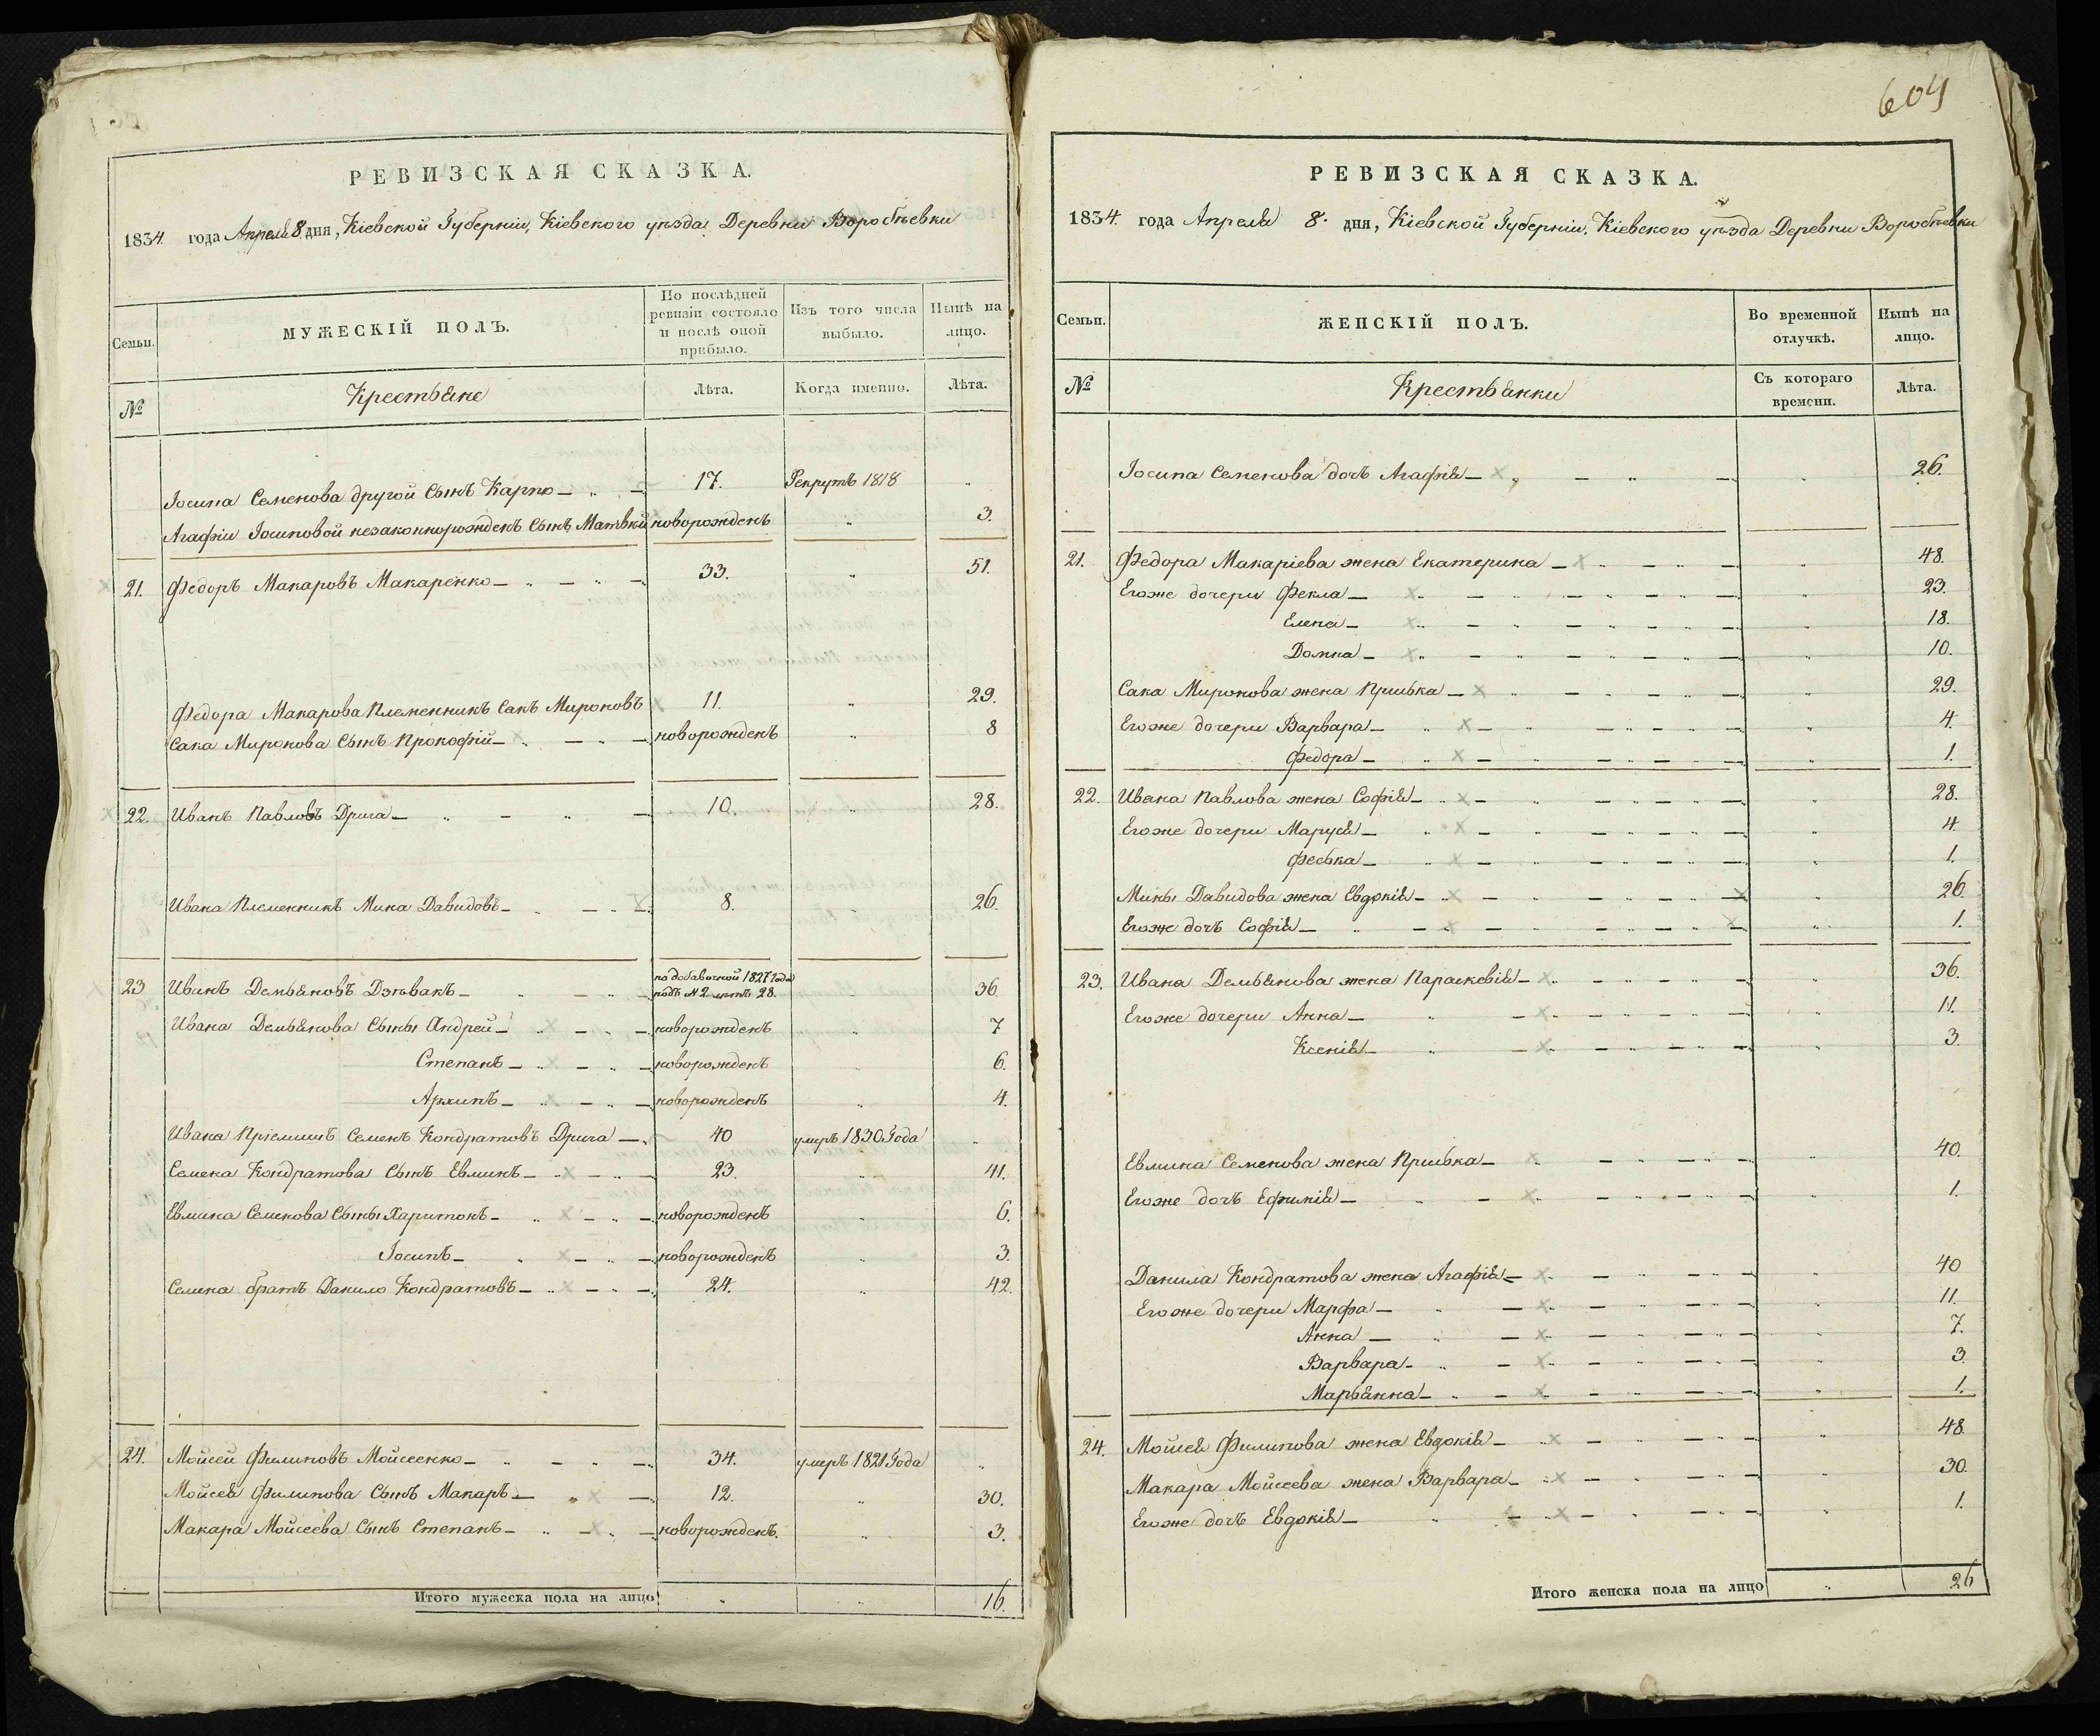 РЕВИЗСКАЯ СКАЗКА.
1834 года Апреля 8 дня, Кіевской Губерніи, Кіевского уѣзда Деревни Воробѣевки
Семьи.
МУЖЕСКІЙ ПОЛЪ.
По послѣдней ревизіи состояло и послѣ оной прибыло.
Изъ того числа выбыло.
Нынѣ на лицо.
№
Крестьяне
Лѣта.
Когда именно.
Лѣта.
Іосипа Семенова другой сынъ Карпо 17. Рекрутъ 1818
Агафіи Іосиповой незаконнорожденъ сынъ Матвѣй новорожденъ 3.
21. Федоръ Макаровъ Макаренко 33. 51.
Федора Макарова племенникъ Сакъ Мироновъ 11. 29.
Сака Миронова сынъ Прокофій новорожденъ 8
22. Иванъ Павловъ Дрига 10. 28.
Ивана племенникъ Мина Давидовъ 8. 26.
23 Иванъ Демьяновъ Дзѣвакъ по добавочной 1827 года подъ №2 лѣтъ 28. 36
Ивана Демьянова сыны Андрей новорожденъ 7
Степанъ новорожденъ 6.
Архипъ новорожденъ 4.
Ивана пріемышъ Семенъ Кондратовъ Дрига 40 умеръ 1830 года
Семена Кондратова сынъ Евминъ 23. 41.
Евмина Семенова сыны Харитонъ новорожденъ 6.
Іосипъ новорожденъ 3.
Семена братъ Данило Кондратовъ 24. 42.
24. Мойсей Филиповъ Мойсеенко 34. умеръ 1821 года
Мойсея Филипова сынъ Макаръ 12. 30.
Макара Мойсеева сынъ Степанъ новорожденъ. 3.
Итого мужеска пола на лицо 16.
604
РЕВИЗСКАЯ СКАЗКА.
1834. года Апреля 8. дня, Кіевской Губерніи, Кіевского уѣзда Деревни Воробѣевки
Семьи.
ЖЕНСКІЙ ПОЛЪ.
Во временной отлучкѣ.
Нынѣ на лицо.
№
Крестьянки
Съ котораго времени.
Лѣта.
Іосипа Семенова дочь Агафія 26.
21. Федора Макаріева жена Екатерина 48.
Егоже дочери Фекла 23.
Елена 18.
Домна 10.
Сака Миронова жена Приська 29.
Егоже дочери Варвара 4.
Федора 1.
22. Ивана Павлова жена Софія 28.
Егоже дочери Маруся 4.
Феська 1.
Мины Давидова жена Евдокія 26.
Егоже дочь Софія 1.
23. Ивана Демьянова жена Параскевія 36.
Егоже дочери Анна 11.
Ксенія 3.
Евмина Семенова жена Приська 40.
Егоже дочь Ефимія 1.
Данила Кондратова жена Агафія 40
Егоже дочери Марфа 11.
Анна 7.
Варвара 3.
Марьянна 1.
24. Мойсея Филипова жена Евдокія 48
Макара Мойсеева жена Варвара 30.
Егоже дочь Евдокія 1.
Итого женска пола на лицо 26